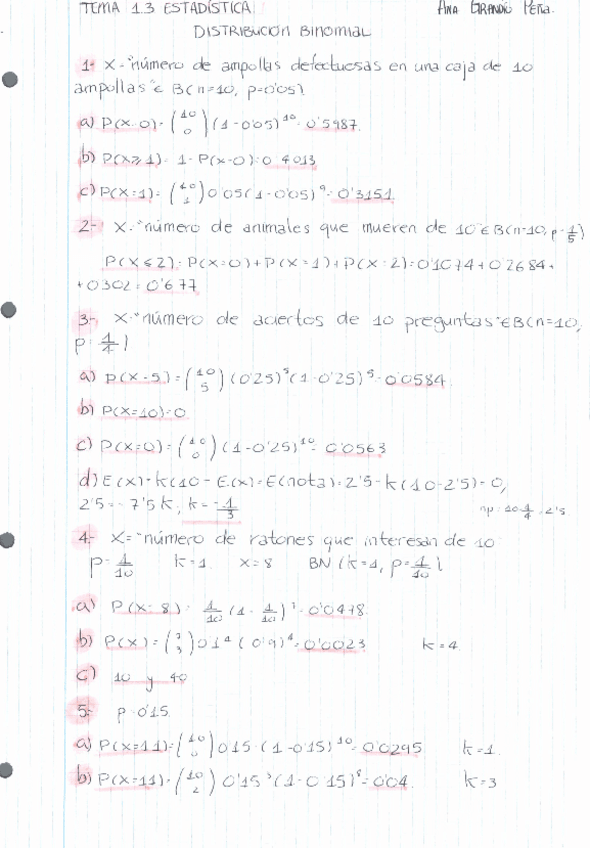 TEMA 1.3 ESTADÍSTICA ANA GRANDÍO PEÑA.
DISTRIBUCIÓN BINOMIAL
1- X- "número de ampollas defectuosas en una caja de 10
ampollas" ∈ B(n=10, p=0'05)
a) P(X=0)=(10 0)(1-0'05)^10=0'5987.
b) P(X≥1)=1-P(X=0)=0'4013
c) P(X=1)=(10 1)0'05(1-0'05)^9=0'3151
2- X- "número de animales que mueren de 10 ∈ B(n=10, p=1/5)
P(X≤2)=P(X=0)+P(X=1)+P(X=2)=0'1074+0'2684+
+0'302=0'677
3- X- "número de aciertos de 10 preguntas" ∈ B(n=10,
p=1/4)
a) P(X=5)=(10 5)(0'25)^5(1-0'25)^5=0'0584
b) P(X=10)=0
c) P(X=0)=(10 0)(1-0'25)^10=0'0563
d) E(X)-k(10-E(X)=E(nota)=2'5-k(10-2'5)=0,
2'5=-7'5k, k=-1/3 np=10 1/4=2'5
4- X= "número de ratones que interesan de 10
p=1/10 k=1 x=8 BN(k=1, p=1/10)
a) P(X=8)=1/10(1-1/10)^7=0'0478
b) P(X)=(7 3)0'1^4(0'9)^4=0'0023 k=4
c) 10 y 40
5- p=0'15
a) P(X=11)=(10 0)0'15·(1-0'15)^10=0'0295 k=1
b) P(X=11)=(10 2)0'15^3(1-0'15)^8=0'04. k=3